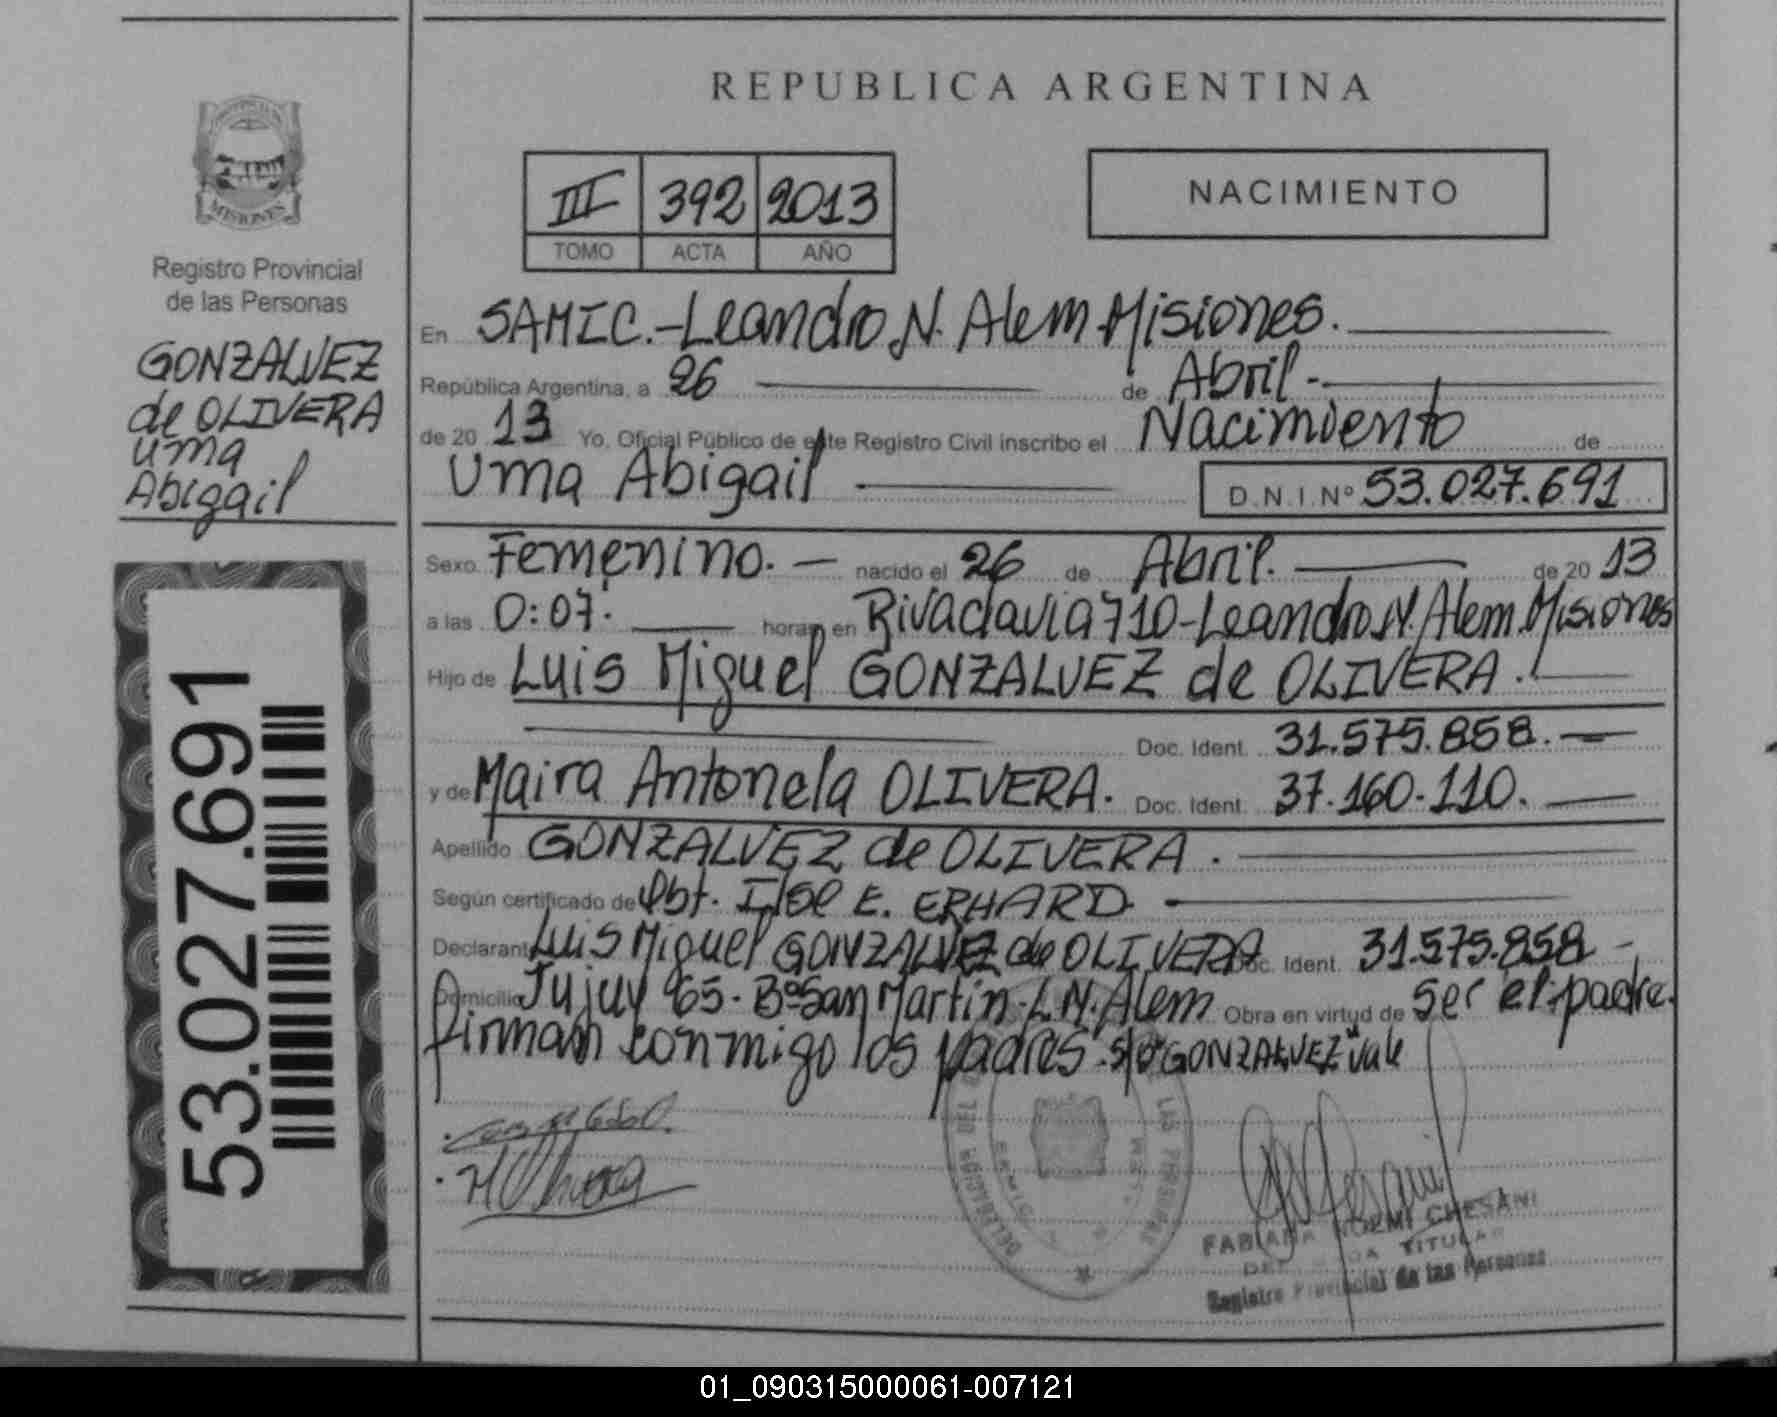 REPUBLICA ARGENTINA
MISIONES
Registro Provincial
de las Personas
GONZALVEZ
de OLIVERA
Uma
Abigail
53.027.691
III 392 2013
TOMO ACTA AÑO
NACIMIENTO
En SAMIC.-Leandro N. Alem.Misiones.
República Argentina, a 26 de Abril.-
de 20 13 Yo, Oficial Público de este Registro Civil inscribo el Nacimiento de
Uma Abigail D.N.I.Nº 53.027.691
Sexo Femenino.- nacido el 26 de Abril. de 20 13
a las 0:07. horas en Rivadavia 710-Leandro N. Alem.Misiones
Hijo de Luis Miguel GONZALVEZ de OLIVERA.
Doc. Ident. 31.575.858.
y de Maira Antonela OLIVERA. Doc. Ident. 37.160.110.
Apellido GONZALVEZ de OLIVERA.
Según certificado de Obt. Ilse E. ERHARD.
Declarante Luis Miguel GONZALVEZ de OLIVERA Doc. Ident. 31.575.858-
Domicilio Jujuy 965. BºSan Martín-L.N.Alem Obra en virtud de ser el padre.
firman conmigo los padres. s/o "GONZALVEZ" Vale
FABIANA NOEMI CHESANI
TITULAR
Registro Provincial de las Personas
01_090315000061-007121